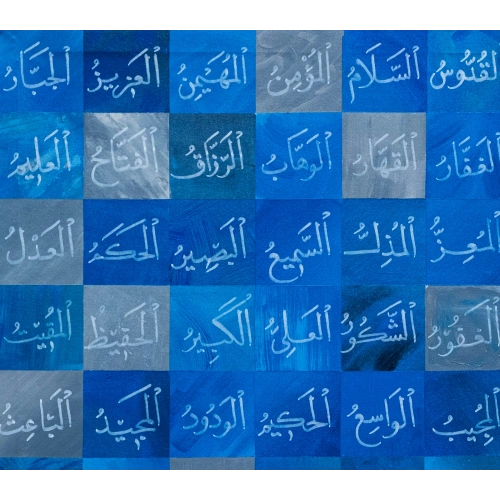 لقدوس السلام المؤمن المهيمن العزيز الجبار
الغفار القهار الوهاب الرزاق الفتاح العليم
المعز المذل السميع البصير الحكم العدل
الغفور الشكور العلي الكبير الحفيظ المقيت
المجيب الواسع الحكيم الودود المجيد الباعث